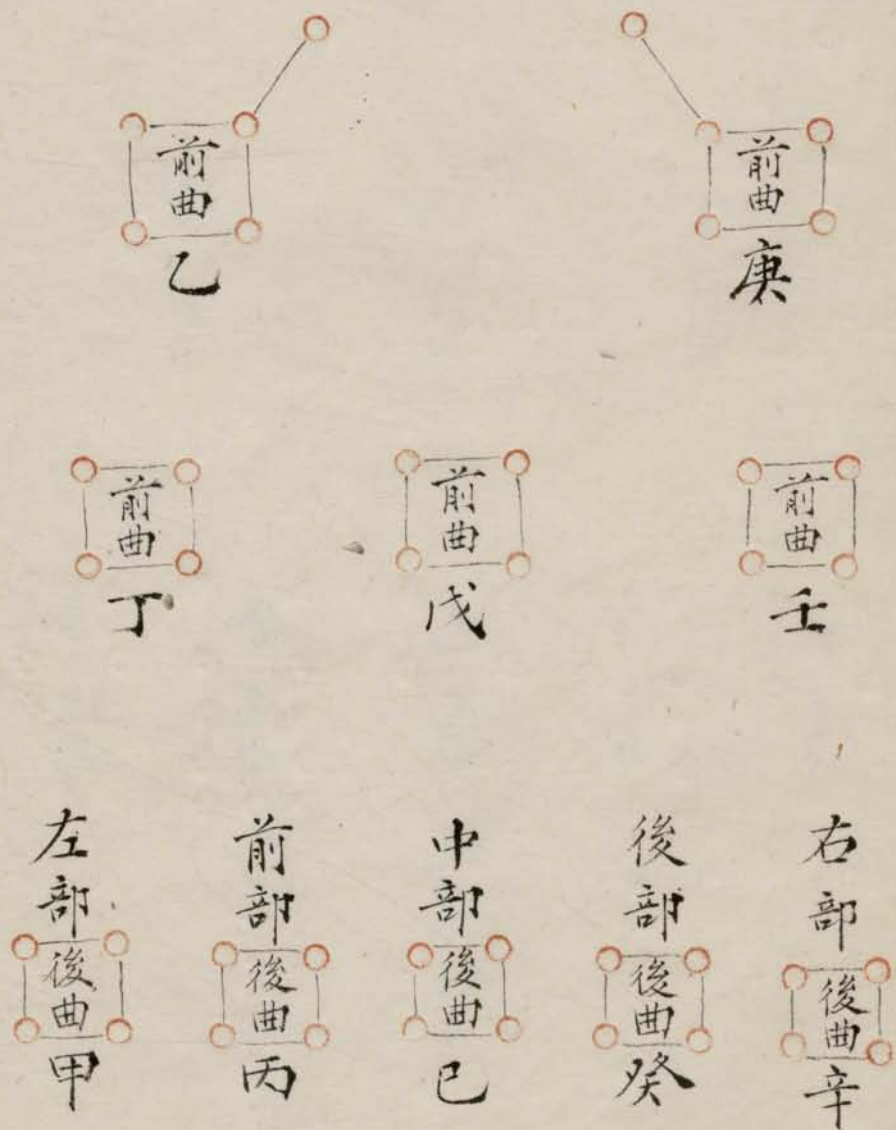 前曲
庚
前曲
乙
前曲
壬
前曲
戊
前曲
丁
右部
後曲
辛
後部
後曲
癸
中部
後曲
巳
前部
後曲
丙
左部
後曲
甲